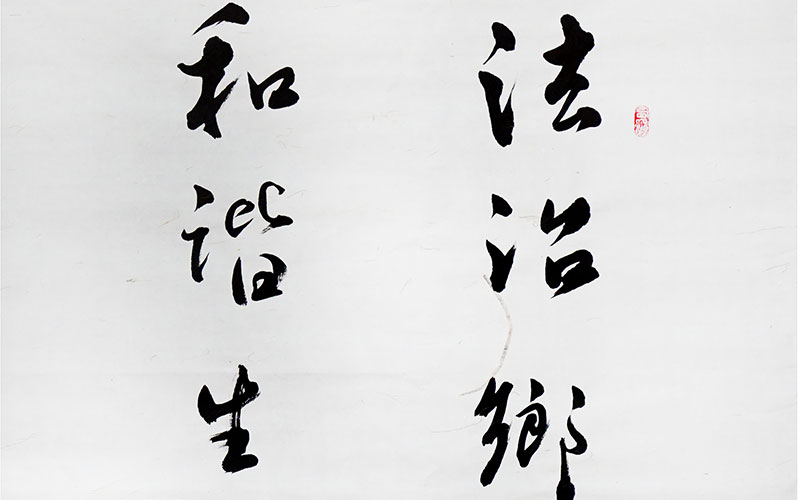 法治鄉
和谐生